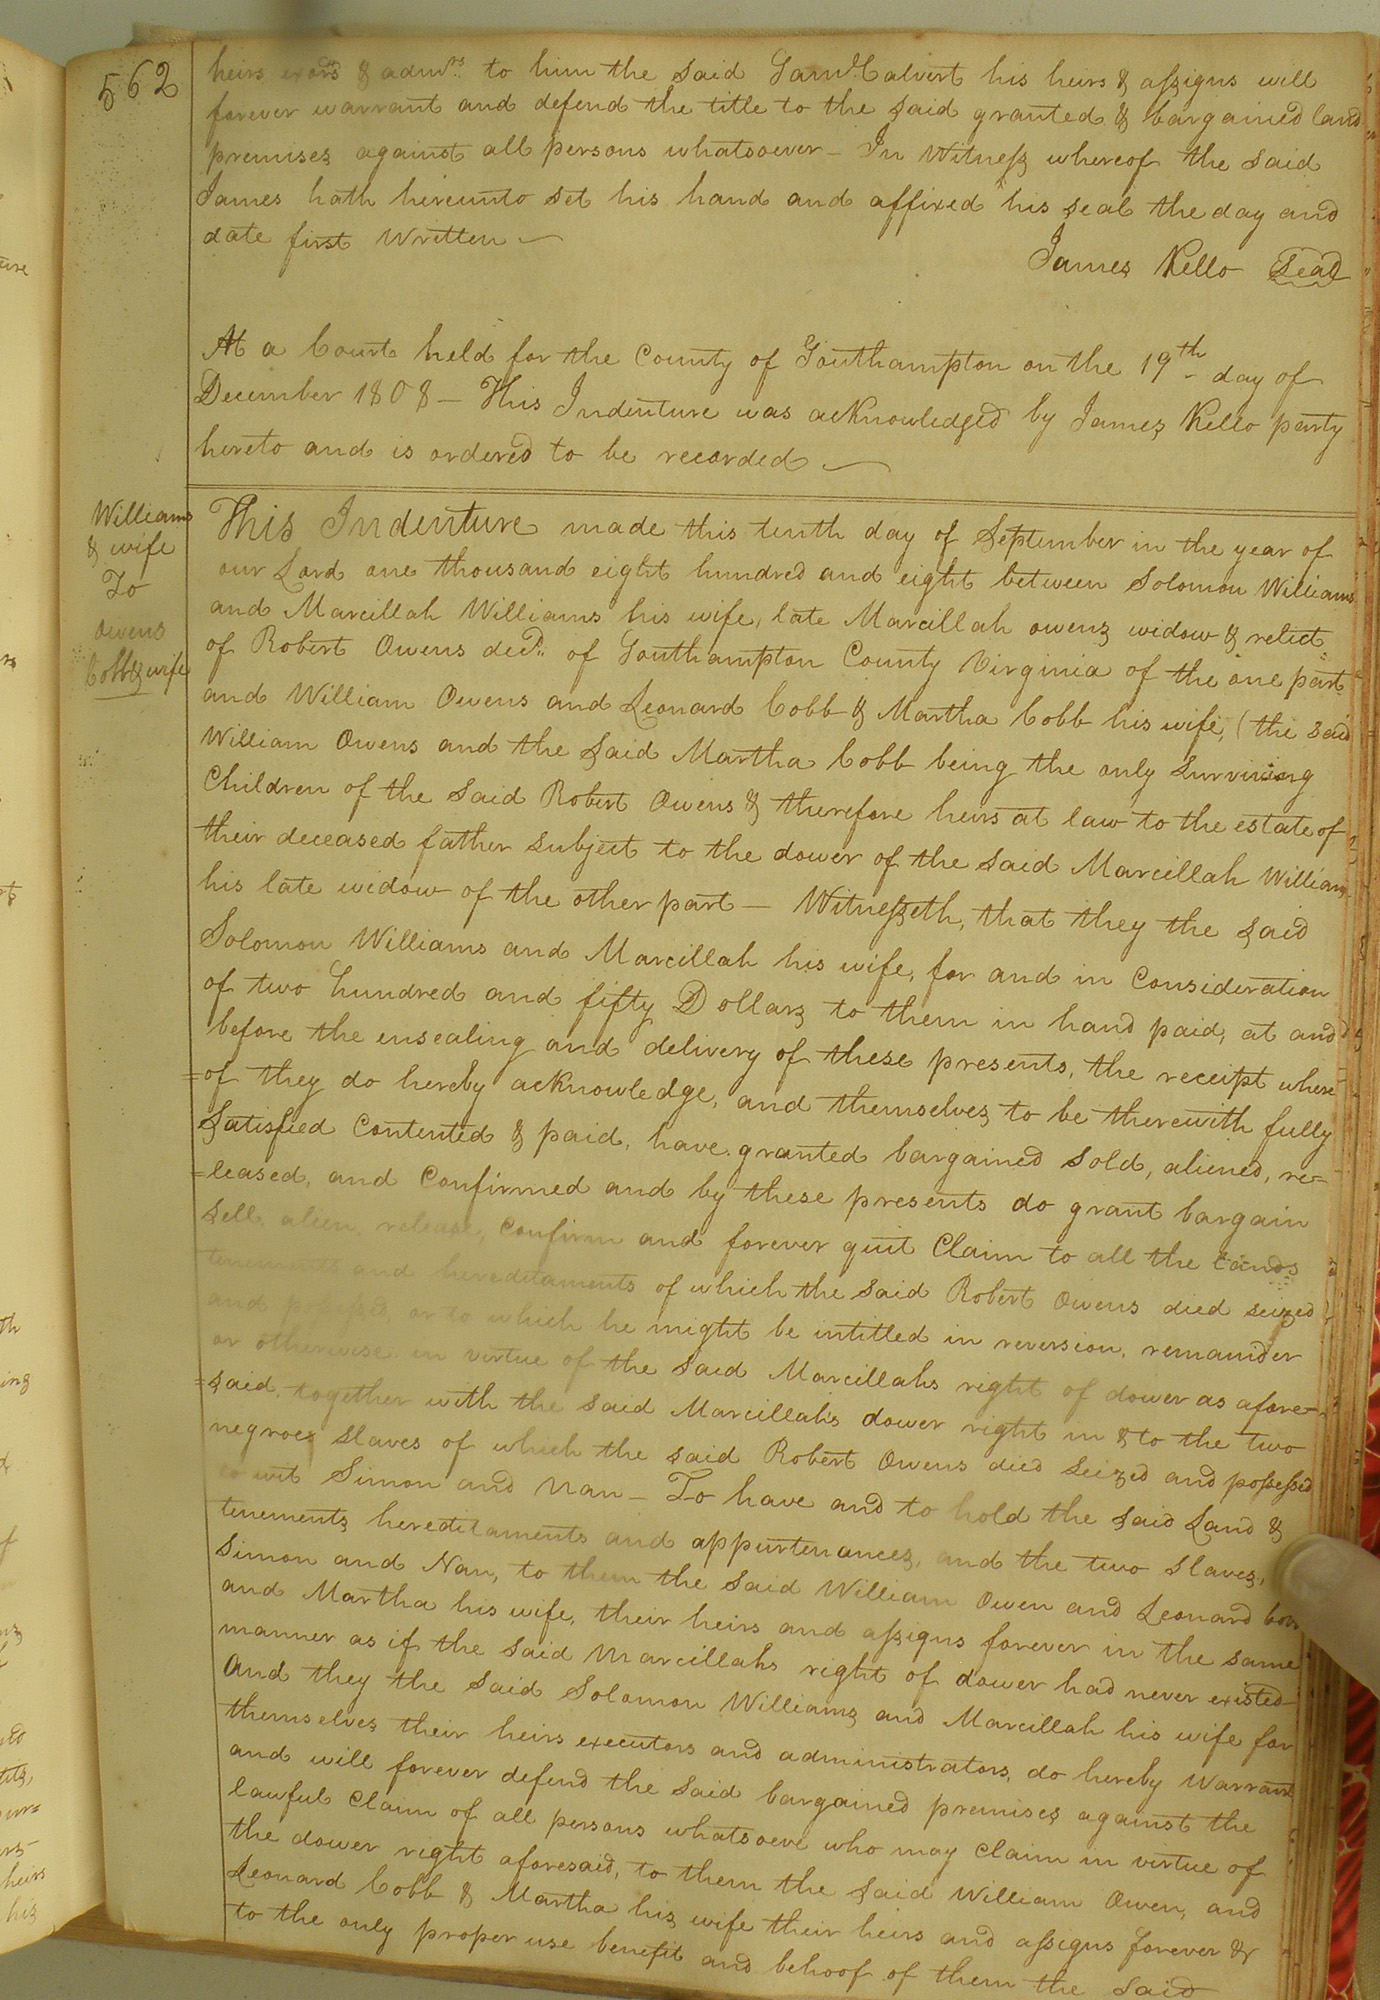 562
heirs exors & admrs. to him the said Saml. Calvert his heirs & assigns will
forever warrant and defend the title to the said granted & bargained land
premises against all persons whatsoever – In Witness whereof the said
James hath hereunto set his hand and affixed his seal the day and
date first written –
James Kello Seal
At a Court held for the County of Southampton on the 19th day of
December 1808 – This Indenture was acknowledged by James Kello party
hereto and is ordered to be recorded –
Williams
& wife
To
Owens
Cobb & wife
This Indenture made this tenth day of September in the year of
our Lord one thousand eight hundred and eight between Solomon Williams
and Marcillah Williams his wife, late Marcillah Owens widow & relict
of Robert Owens decd. of Southampton County Virginia of the one part
and William Owens and Leonard Cobb & Martha Cobb his wife, (the said
William Owens and the said Martha Cobb being the only surviving
Children of the said Robert Owens & therefore heirs at law to the estate of
their deceased father subject to the dower of the said Marcillah Williams
his late widow of the other part – Witnesseth, that they the said
Solomon Williams and Marcillah his wife, for and in Consideration
of two hundred and fifty Dollars to them in hand paid, at and
before the ensealing and delivery of these presents, the receipt where
=of they do hereby acknowledge, and themselves to be therewith fully
Satisfied Contented & paid, have granted bargained sold, aliened, re-
=leased, and Confirmed and by these presents do grant bargain
sell alien, release, Confirm and forever quit Claim to all the Lands
tenements and hereditaments of which the said Robert Owens died seized
and possessed, or to which he might be intitled in reversion, remainder
or otherwise in virtue of the said Marcillahs right of dower as afore-
=said, together with the said Marcillah's dower right in & to the two
negroes slaves of which the said Robert Owens died seized and possessed
to wit Simon and Nan – To have and to hold the said Land &
tenements hereditaments and appurtenances, and the two slaves,
Simon and Nan, to them the said William Owen and Leonard Cobb
and Martha his wife, their heirs and assigns forever in the same
manner as if the said Marcillahs right of dower had never existed –
And they the said Solomon Williams and Marcillah his wife for
themselves their heirs executors and administrators, do hereby Warrant
and will forever defend the said bargained premises against the
lawful Claim of all persons whatsoeve who may Claim in virtue of
the dower right aforesaid, to them the said William Owen, and
Leonard Cobb & Martha his wife their heirs and assigns forever &
to the only proper use benefit and behoof of them the said